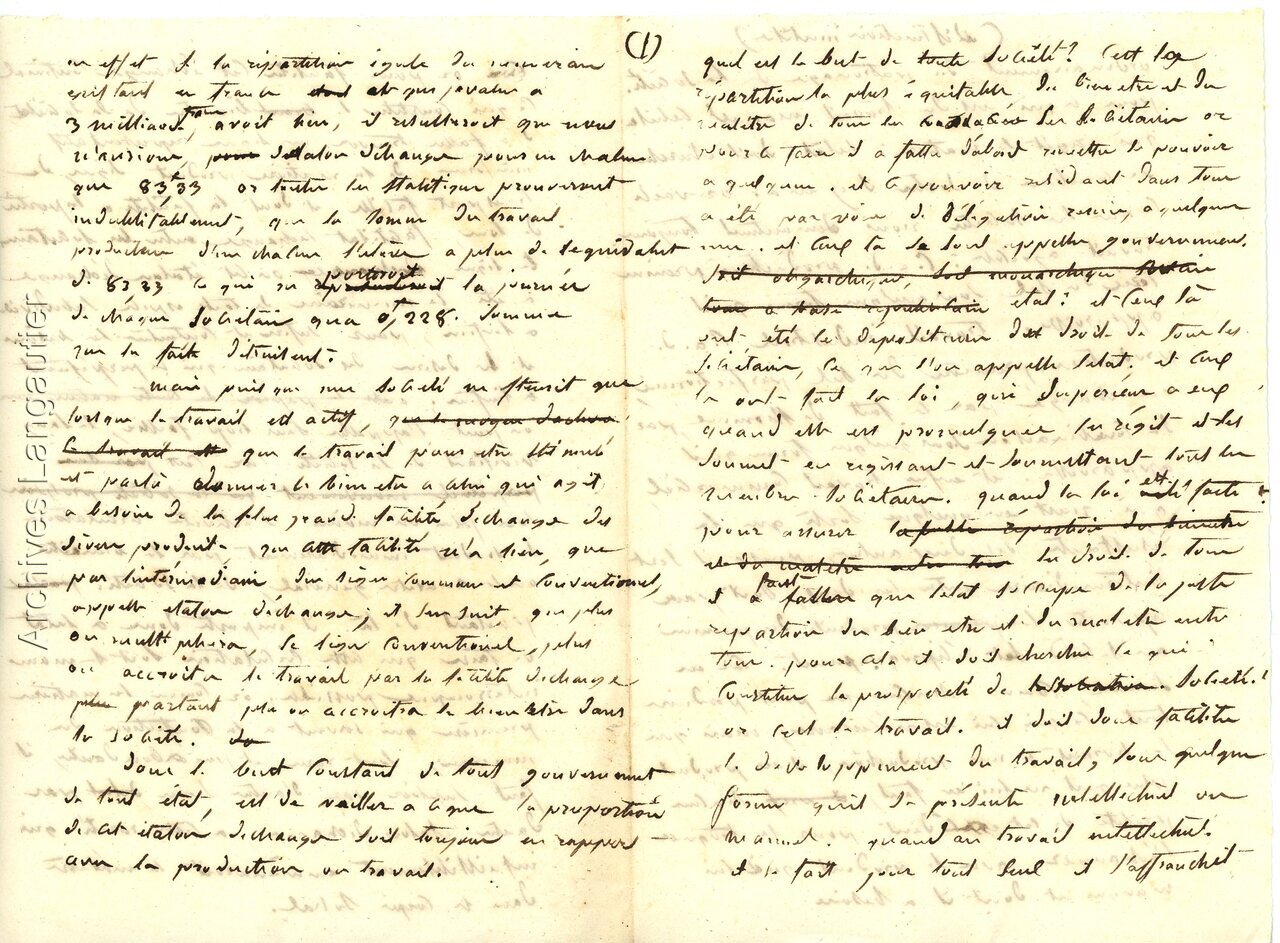 (1)
en effet si la répartition égale du numeraire
existant en france et que j'evalue a
3 milliards francs, avoit lieu, il resulteroit que nous
n'aurions, pour etalon d'échange pour un chacun
que 83f33 or toutes les statistiques prouveront
indubitablement, que la somme du travail
producteur d'un chacun s'eleve a plus de l'equivalent
de 83 33 ce qui ne porteroit la journée
de chaque Societaire qu'a 0f,228. Somme
que les faits détruisent.
mais puisque une Société ne fleurit que
lorsque le travail est actif,
le travail que le travail pour etre stimulé
et partà donner le bien etre a celui qui agit,
a besoin de la plus grande facilité d'echange des
divers produits que cette facilité n'a lieu, que
par l'intermédiaire du signe commun et conventionnel,
appellé etalon d'échange; et s'en suit, que plus
on multipliera, le signe conventionel, plus
on accroitra le travail par la facilité d'echange
plus partant plus on accroitra le bien être dans
la Société.
Donc le but constant de tout gouvernement
de tout état, est de veiller a ce que la proportion
de cet etalon d'echange soit toujours en rapport
avec la production ou travail.
quel est le but de toute Société? C'est la
répartition la plus équitable du bien etre et du
malêtre de tous les Sociétaires or
pour ce faire il a fallu d'abord remettre le pouvoir
a quelqu'un. et ce pouvoir résidant dans tous
a été par voie de délégation remis, a quelques
uns. et ceux la se sont appellés gouvernement.
soit oligarchique, soit monarchique
a base republicaine etat? et ceux là
ont été les dépositaires des droits de tous les
Societaires, ce que l'on appelle l'etat. et ceux
la ont fait la loi, qui supérieur a eux
quand elle est promulguée les régit et les
soumet en régissant et soumettant tous les
membres Sociétaires. quand la loi a été faite
pour assurer la juste répartition du bienetre
et du malêtre entre tous les droits de tous
il a fallu que l'etat s'occupe de la juste
repartion du bien etre et du malêtre entre
tous. pour cela il doit chercher ce qui
constitue la prosperité de l'association. Société!
or c'est le travail. il doit donc faciliter
le developpement du travail, sous quelque
forme qu'il se présente intellectuel ou
manuel. quand au travail intellectuel.
il se fait jour tout seul il s'affranchit
Archives Langautier